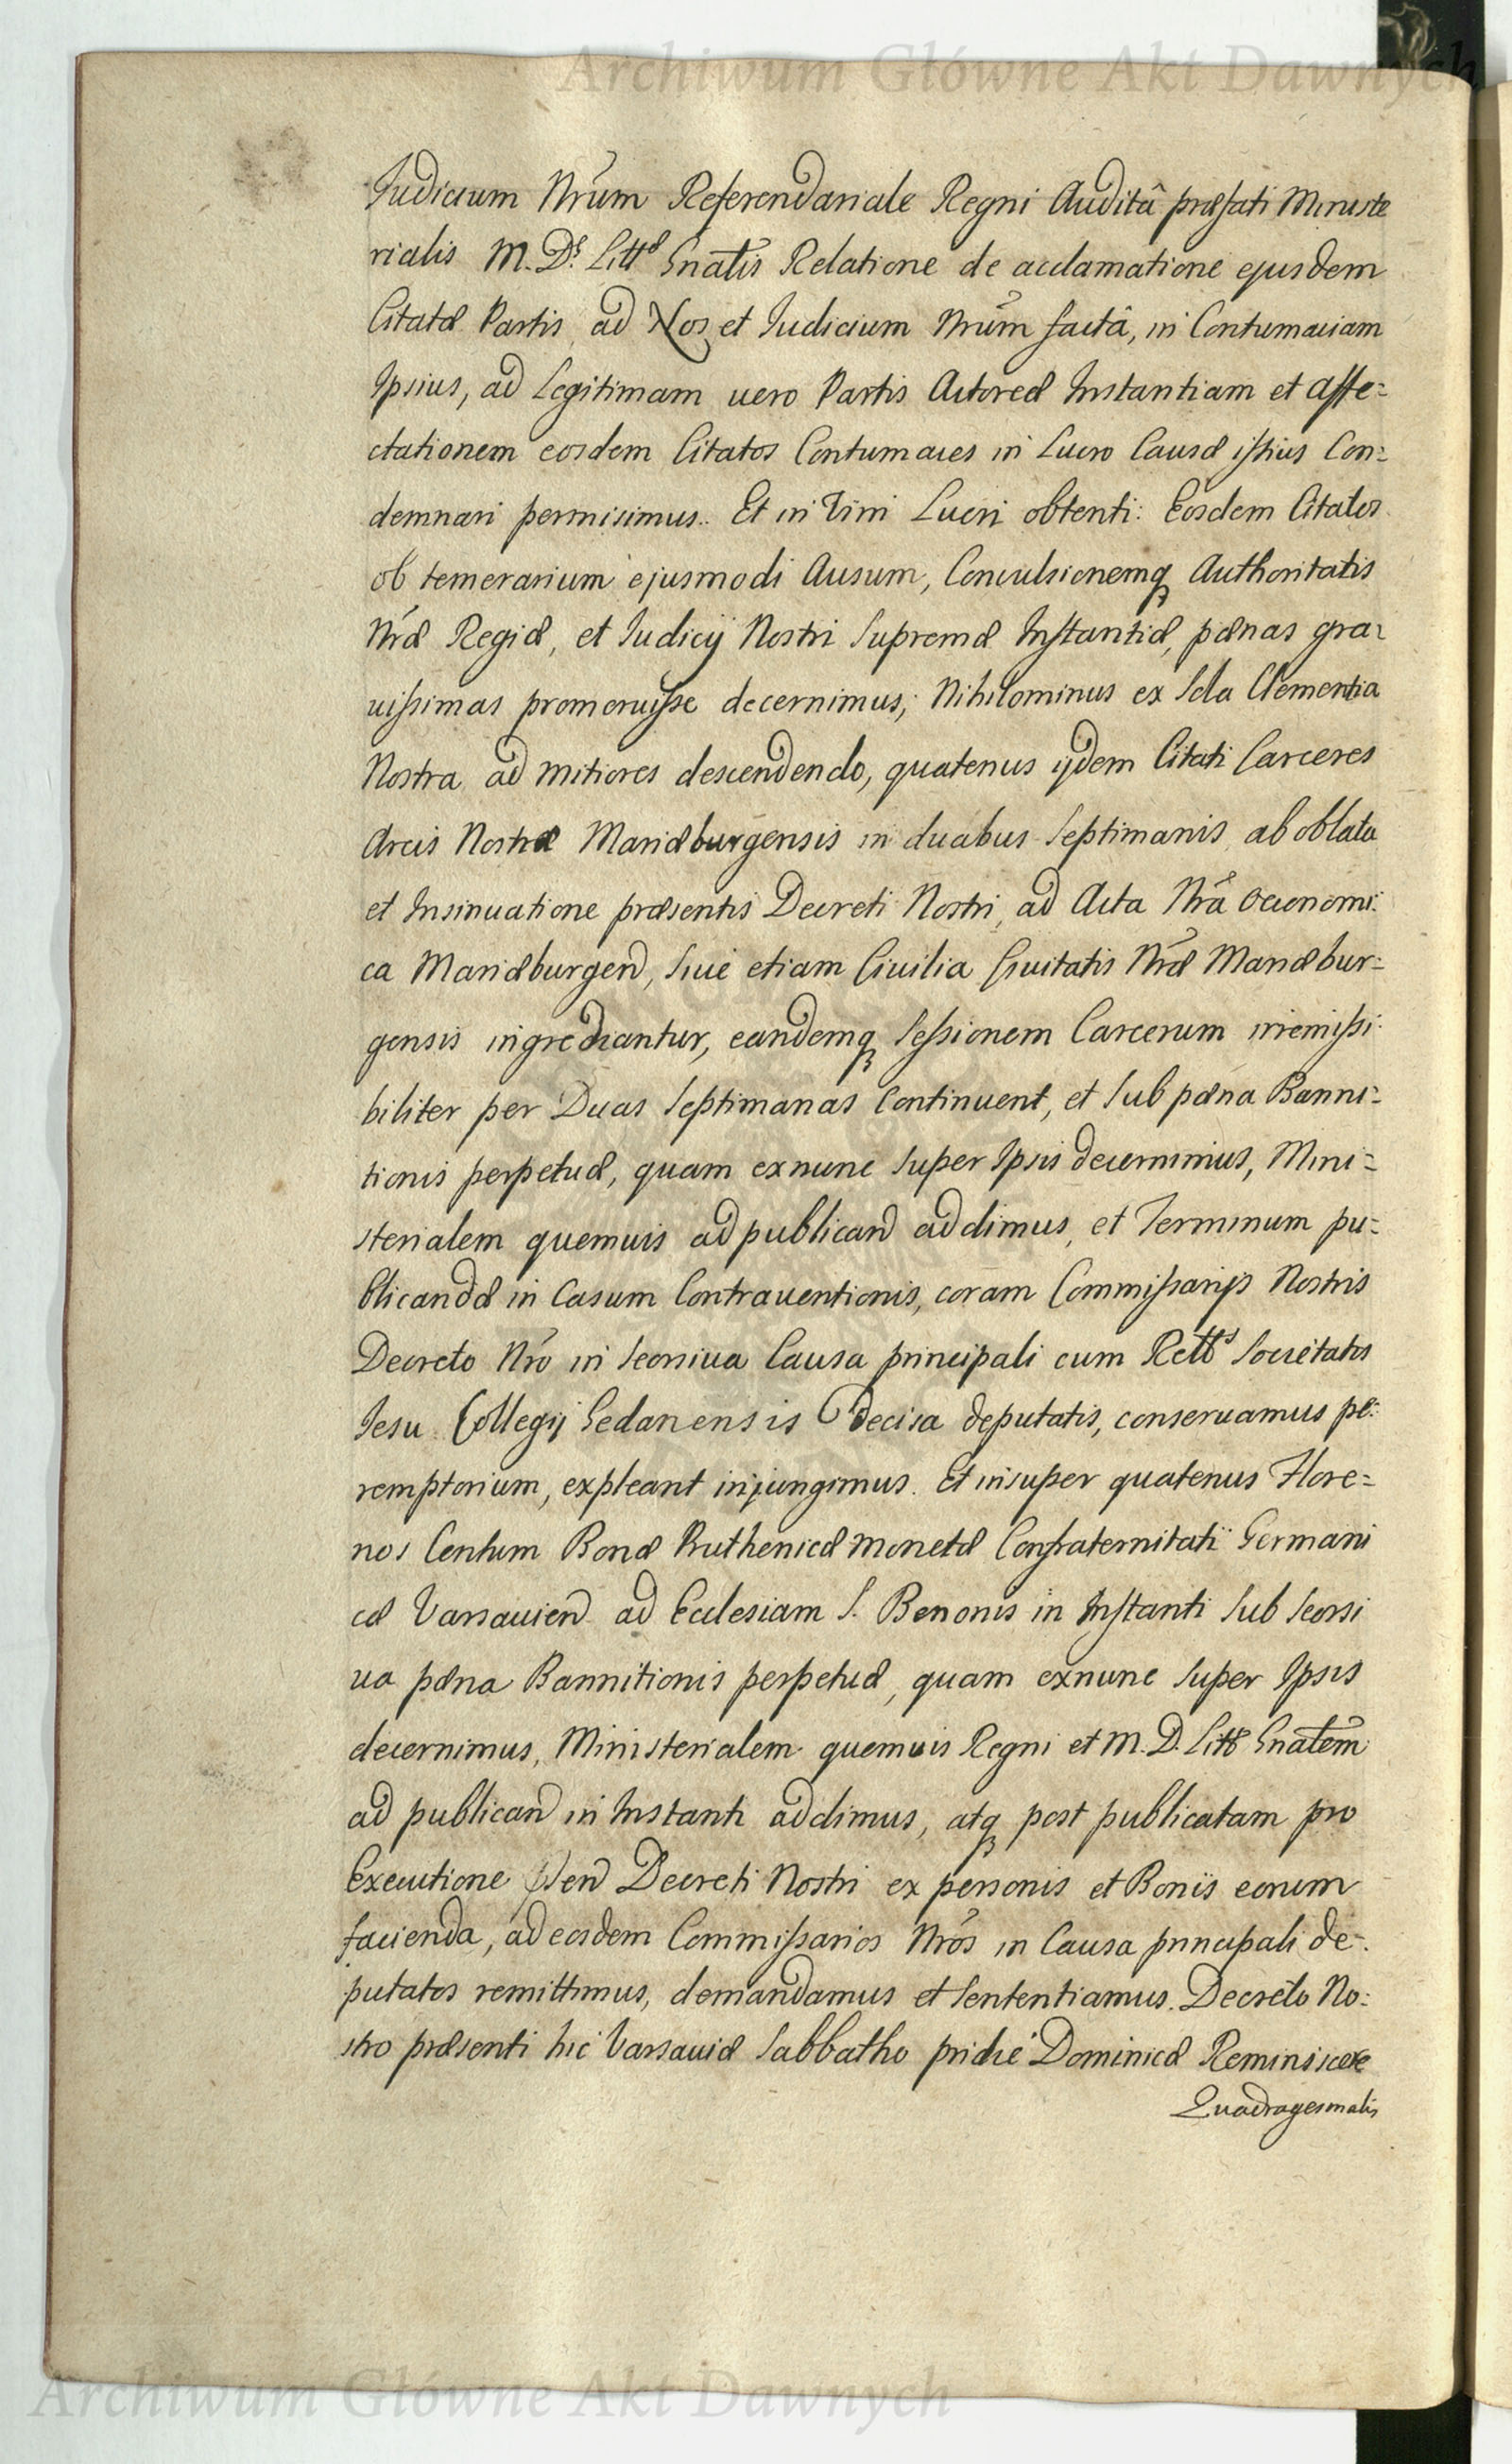 Archiwum Główne Akt Dawnych
Judicium Nrũm Referendariale Regni Auditâ præfati Ministe
rialis M. Ds. Littæ Gnãlis Relatione de acclamatione ejusdem
Citatæ Partis, ad Nos et Judicium Nrũm factâ, in Contumaciam
Ipsius, ad Legitimam uero Partis Actoreæ Instantiam et affe=
ctationem eosdem Citatos Contumaces in Lucro Causæ istius Con=
demnari permisimus. Et in Vim Lucri obtenti: Eosdem Citatos
ob temerarium ejusmodi Ausum, Conculsionemq Authoritatis
Nræ Regiæ, et Judicij Nostri Supremæ Instantiæ, pænas gra=
uissimas promeruisse decernimus; Nihilominus ex Sola Clementia
Nostra ad mitiores descendendo, quatenus ijdem Citati Carceres
Arcis Nostræ Mariæburgensis in duabus Septimanis ab oblata
et Insinuatione præsentis Decreti Nostri, ad Acta Nra Oeconomi:
ca Mariæburgen, Siue etiam Ciuilia Ciuitatis Nræ Mariæbur=
gensis ingrediantur, eandemq Sessionem Carcerum irremissi:
biliter per Duas Septimanas Continuent, et Sub pæna Banni=
tionis perpetuæ, quam exnunc Super Ipsis decernimus, Mini=
sterialem quemuis ad publicand addimus, et Terminum pu=
blicandæ in Casum Contrauentionis, coram Commissarijs Nostris
Decreto Nro in Seorsiua Causa principali cum Rellds Societatis
Jesu Collegij Gedanensis Decisa deputatis, conseruamus pe:
remptorium, expleant injungimus. Et insuper quatenus Flore=
nos Centum Bonæ Pruthenicæ monetæ Confraternitati Germani
cæ Varsauien ad Ecclesiam S. Benonis in Instanti Sub Seorsi
ua pæna Bannitionis perpetuæ, quam exnunc Super Ipsis
decernimus, Ministerialem quemuis Regni et M. D. Littæ Gnãlem
ad publicand in Instanti addimus, atq post publicatam pro
Executione Pñen Decreti Nostri ex personis et Bonis eorum
facienda, ad eosdem Commissarios Nros in Causa principali de=
putatos remittimus, demandamus et Sententiamus. Decreto No:
stro præsenti hic Varsauiæ Sabbatho pridie Dominicæ Reminiscere
Quadragesmalis
Archiwum Główne Akt Dawnych